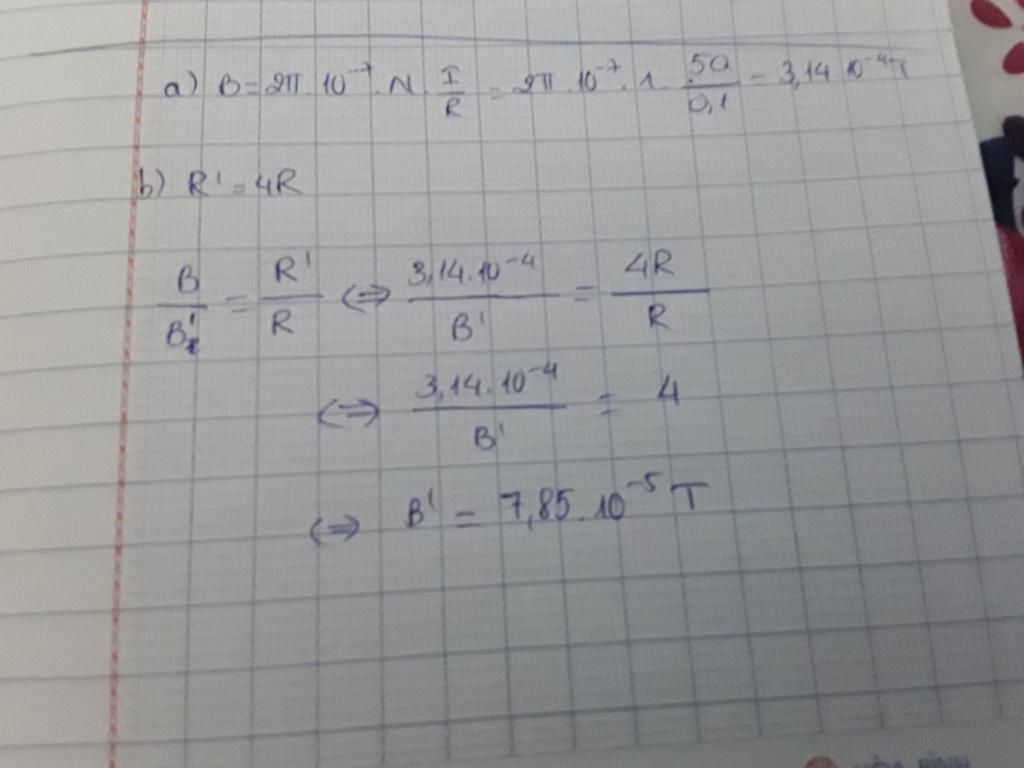 a) B = 2π.10⁻⁷.N.I/R = 2π.10⁻⁷.1.50/0,1 = 3,14 10⁻⁴T
b) R' = 4R
B/B' = R'/R ⇔ 3,14.10⁻⁴/B' = 4R/R
⇔ 3,14.10⁻⁴/B' = 4
⇔ B' = 7,85.10⁻⁵ T